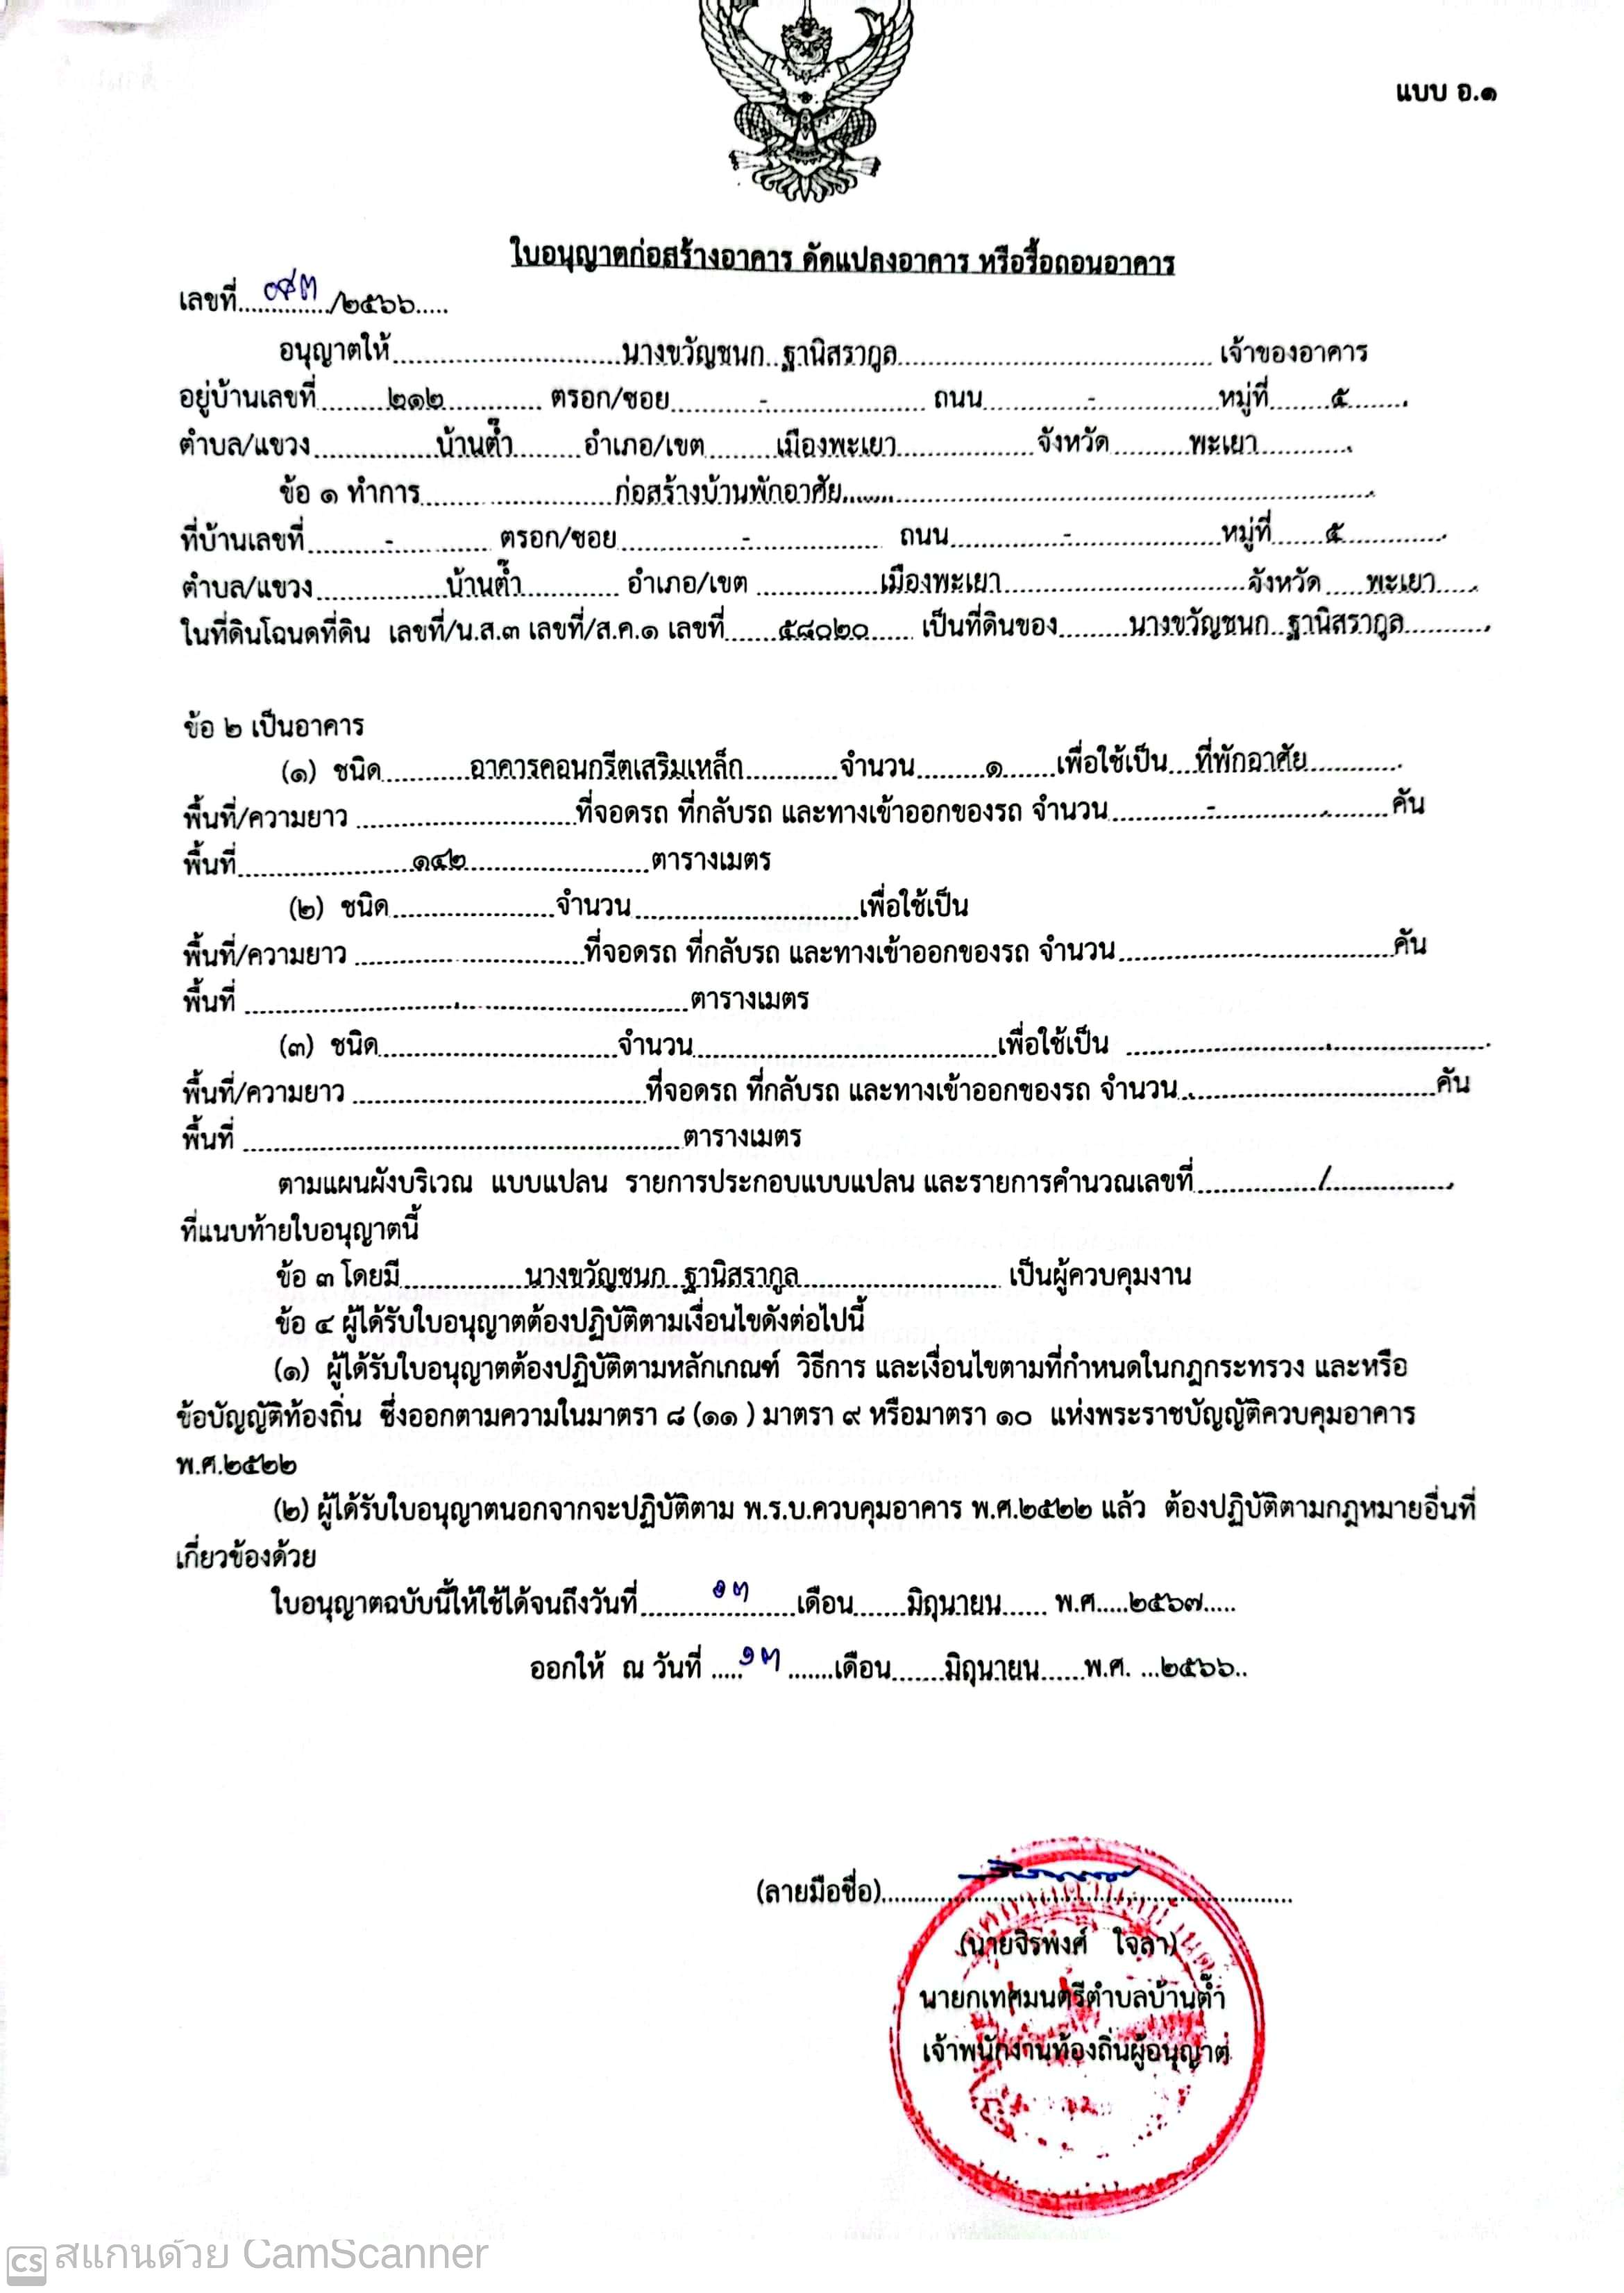 แบบ อ.๑
ใบอนุญาตก่อสร้างอาคาร ดัดแปลงอาคาร หรือรื้อถอนอาคาร
เลขที่............../๒๕๖๖.....
อนุญาตให้..............................นางขวัญชนก ฐานิสรากูล........................................ เจ้าของอาคาร
อยู่บ้านเลขที่.........๒๑๒............. ตรอก/ซอย............-..................... ถนน..............-.................หมู่ที่........๕........
ตำบล/แขวง................บ้านต๊ำ.........อำเภอ/เขต.........เมืองพะเยา..................จังหวัด..........พะเยา............
ข้อ ๑ ทำการ.........................ก่อสร้างบ้านพักอาศัย......................................................................
ที่บ้านเลขที่..........-............ ตรอก/ซอย................-.................. ถนน...............-....................หมู่ที่.......๕..............
ตำบล/แขวง.................บ้านต๊ำ............. อำเภอ/เขต ................เมืองพะเยา................................จังหวัด .....พะเยา......
ในที่ดินโฉนดที่ดิน เลขที่/น.ส.๓ เลขที่/ส.ค.๑ เลขที่.......๕๘๐๒๐...... เป็นที่ดินของ.........นางขวัญชนก ฐานิสรากูล............
ข้อ ๒ เป็นอาคาร
(๑) ชนิด............อาคารคอนกรีตเสริมเหล็ก............จำนวน.........๑.......เพื่อใช้เป็น....ที่พักอาศัย............
พื้นที่/ความยาว .............................ที่จอดรถ ที่กลับรถ และทางเข้าออกของรถ จำนวน.............-......................คัน
พื้นที่.......................๑๔๒........................ตารางเมตร
(๒) ชนิด......................จำนวน.............................เพื่อใช้เป็น
พื้นที่/ความยาว ..............................ที่จอดรถ ที่กลับรถ และทางเข้าออกของรถ จำนวน....................................คัน
พื้นที่ ..........................................................ตารางเมตร
(๓) ชนิด...............................จำนวน........................................เพื่อใช้เป็น ................................................
พื้นที่/ความยาว .......................................ที่จอดรถ ที่กลับรถ และทางเข้าออกของรถ จำนวน..................................คัน
พื้นที่ ..........................................................ตารางเมตร
ตามแผนผังบริเวณ แบบแปลน รายการประกอบแบบแปลน และรายการคำนวณเลขที่................/................
ที่แนบท้ายใบอนุญาตนี้
ข้อ ๓ โดยมี................นางขวัญชนก ฐานิสรากูล.......................... เป็นผู้ควบคุมงาน
ข้อ ๔ ผู้ได้รับใบอนุญาตต้องปฏิบัติตามเงื่อนไขดังต่อไปนี้
(๑) ผู้ได้รับใบอนุญาตต้องปฏิบัติตามหลักเกณฑ์ วิธีการ และเงื่อนไขตามที่กำหนดในกฎกระทรวง และหรือ
ข้อบัญญัติท้องถิ่น ซึ่งออกตามความในมาตรา ๘ (๑๑ ) มาตรา ๙ หรือมาตรา ๑๐ แห่งพระราชบัญญัติควบคุมอาคาร
พ.ศ.๒๕๒๒
(๒) ผู้ได้รับใบอนุญาตนอกจากจะปฏิบัติตาม พ.ร.บ.ควบคุมอาคาร พ.ศ.๒๕๒๒ แล้ว ต้องปฏิบัติตามกฎหมายอื่นที่
เกี่ยวข้องด้วย
ใบอนุญาตฉบับนี้ให้ใช้ได้จนถึงวันที่.........๑๓......เดือน.......มิถุนายน...... พ.ศ.....๒๕๖๗.....
ออกให้ ณ วันที่ .....๑๓.......เดือน.......มิถุนายน......พ.ศ. ...๒๕๖๖..
(ลายมือชื่อ)......................................................
(นายจิรพงศ์ ใจลา)
นายกเทศมนตรีตำบลบ้านต๊ำ
เจ้าพนักงานท้องถิ่นผู้อนุญาต
CS สแกนด้วย CamScanner